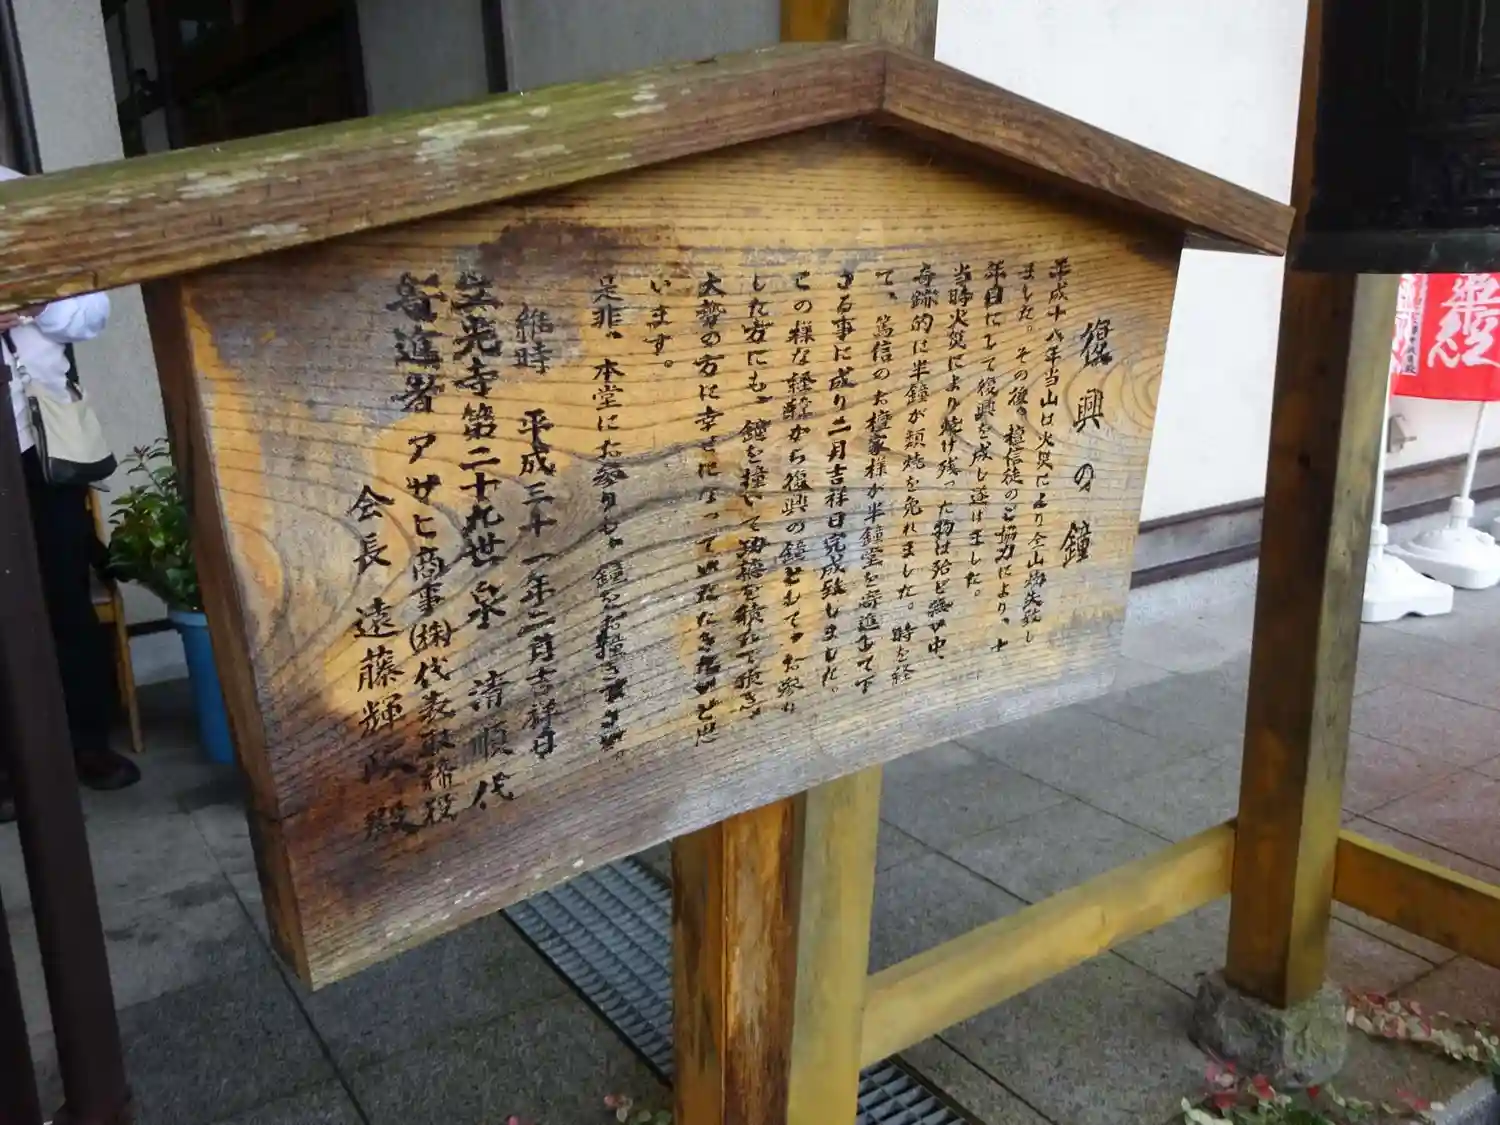 復興の鐘
平成十八年当山は火災により全山焼失致し
ました。その後、檀信徒のご協力により、十
年目にして復興を成し遂げました。
当時火災により焼け残った物は殆ど無い中、
奇跡的に半鐘が類焼を免れました。時を経
て、篤信のお檀家様が半鐘堂を寄進して下
さる事に成り二月吉祥日完成致しました。
この様な経験から復興の鐘として、お参り
した方にも、鐘を撞いて功徳を積んで頂き、
大勢の方に幸せになっていただきたいと思
います。
是非、本堂にお参りも、鐘をお撞き下さい。
維時 平成三十一年二月吉祥日
光寺第二十九世 泉 清順代
寄進者 アサヒ商事(株)代表取締役
会長 遠藤輝政 殿